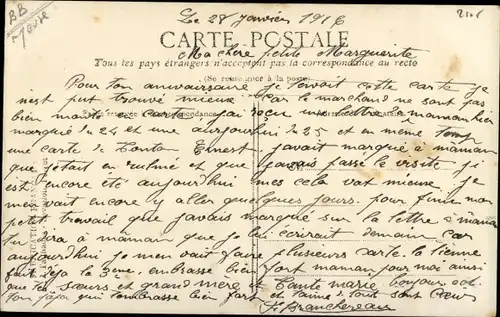 BB
Meuse
Le 28 Janvier 1916
CARTE POSTALE
Ma chère petite Marguerite
Tous les pays étrangers n'acceptent pas la correspondance au recto
(Se renseigner à la poste)
Pour ton anniversaire je tenvoit cette carte je
nest put trouvé mieux Car le marchand ne sont pas
bien monté en carte jai reçu une lettre a maman hier
marqué du 24 et une aujourhui du 25 et en meme temp
une carte de Tonton Ernest. javait marqué à màman
que jetait en et que javais passé la visite ji
est encore été aujourdhui mes cela vat mieux je
men vait encore y aller quelques jours. pour finir mon
petit travail que javais marqué sur la lettre à màman
tu dira à màman que je lui écrirait demain car
aujourdhui je men vait faire plusieurs carte. la tienne
fait deja la 3eme. embrasse bien fort maman pour moi ainsi
que tes sœurs et grand mère et Tante marie bonjour
ton pàpà qui tembrasse bien fort et taime de tout son cœur
F. Branchereau